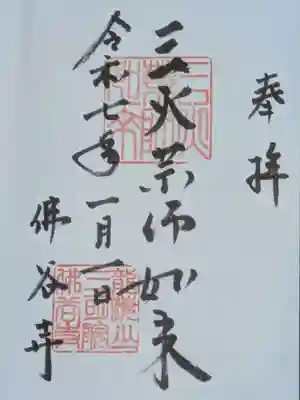 奉拝
三火薬師如来
令和七年一月一日
佛谷寺
龍海山
三明院
佛谷寺